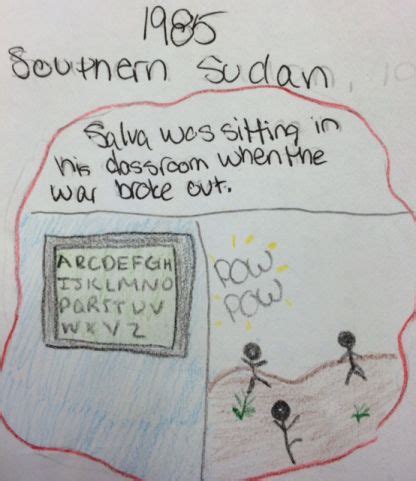 1985
Southern Sudan,
Salva was sitting in
his classroom when the
war broke out.
ABCDEFGH
IJKLMNO
PQRSTUV
WXYZ
POW
POW